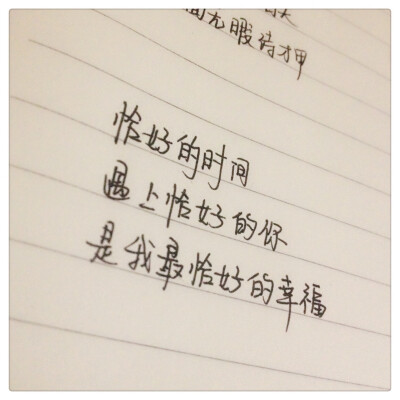 无暇诗押
恰好的时间
遇上恰好的你
是我最恰好的幸福